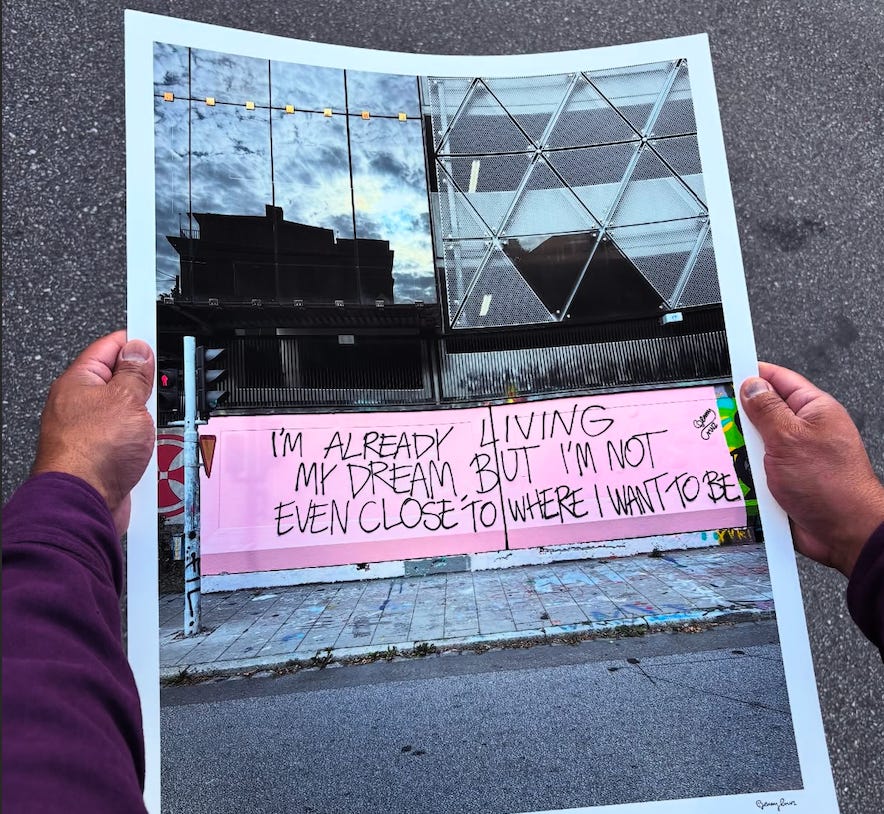 I'M ALREADY LIVING
MY DREAM, BUT I'M NOT
EVEN CLOSE TO WHERE I WANT TO BE